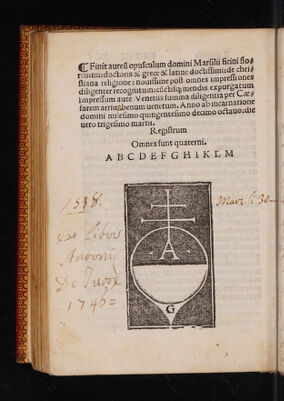 ¶ Finit aureũ opusculum domini Marsilii ficini flo
rentini: doctoris & grece & latine doctissimi: de chris
tiana religione: nouissime post omnes impressiones
diligenter recognitum: mendis expurgatum
Impressum aute Venetiis summa diligentia per Cæ
sarem arriuabenum uenetum. Anno ab incarnatione
domini milesimo quingentesimo decimo octauo: die
uero trigesimo martii.
Registrum
Omnes sunt quaterni.
A B C D E F G H I K L M
1518.
Marz. 30
A
Ex libris
Antonij
De
1746=
G